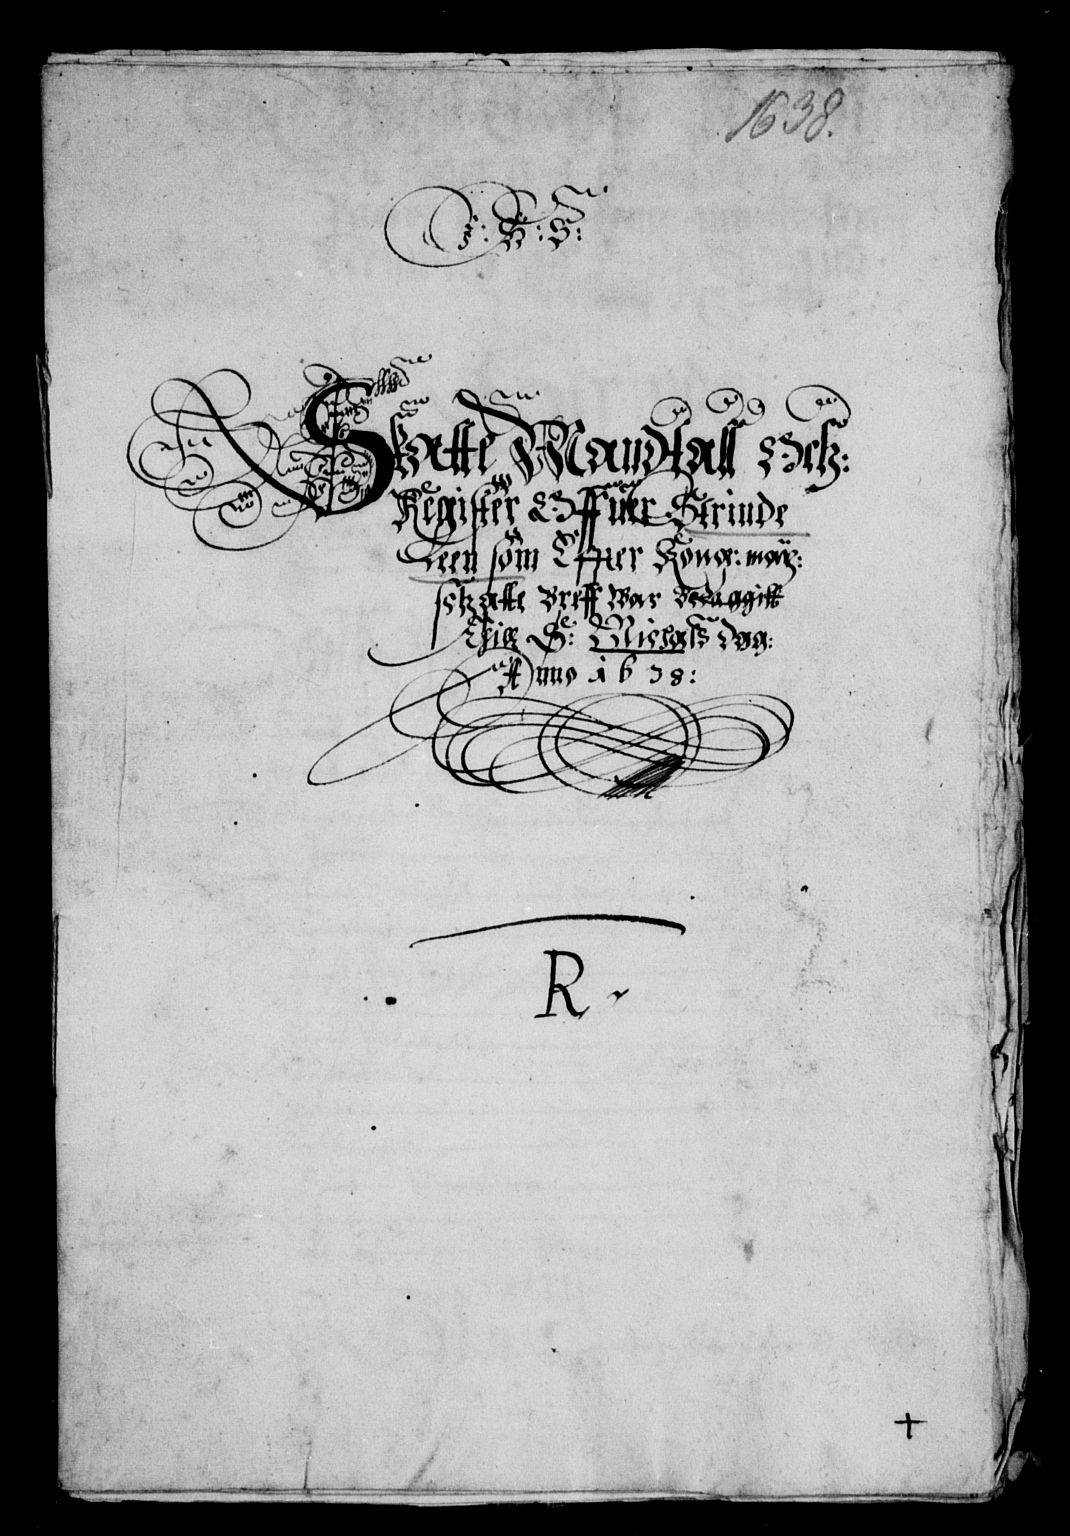 1638.
J: H: S:
Skatte Mandtall Och:
Register Offuer Strinde
Leen som Effter Kong: maÿ:
schatte Breff War
Thill S: Michels dag:
Anno 1638:
R
+